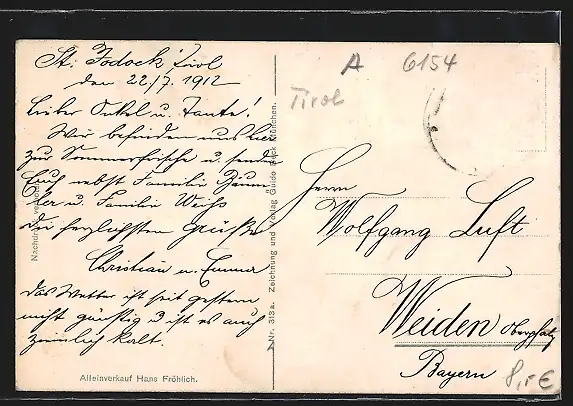 St. Jodock Tirol
den 22/7. 1912
Lieber Onkel u. Tante!
Wir befinden uns hier
zur Sommerfrische u. senden
Euch nebst Familie
u. Familie Weihs
die herzlichsten Grüße
Christian u. Emma
Das Wetter ist seit gestern
nicht günstig u ist es auch
ziemlich kalt.
Alleinverkauf Hans Fröhlich.
Nachdruck verboten
Nr. 313 a. Zeichnung und Verlag Guido Reck München.
A 6154
Tirol
Herrn
Wolfgang Luft
Weiden Oberpfalz
Bayern
8,- €